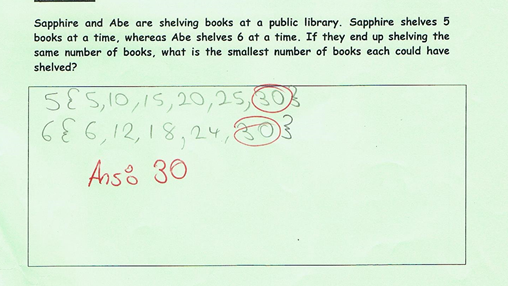 Sapphire and Abe are shelving books at a public library. Sapphire shelves 5
books at a time, whereas Abe shelves 6 at a time. If they end up shelving the
same number of books, what is the smallest number of books each could have
shelved?
5{5,10,15,20,25,30}
6{6,12,18,24,30}
Ans: 30